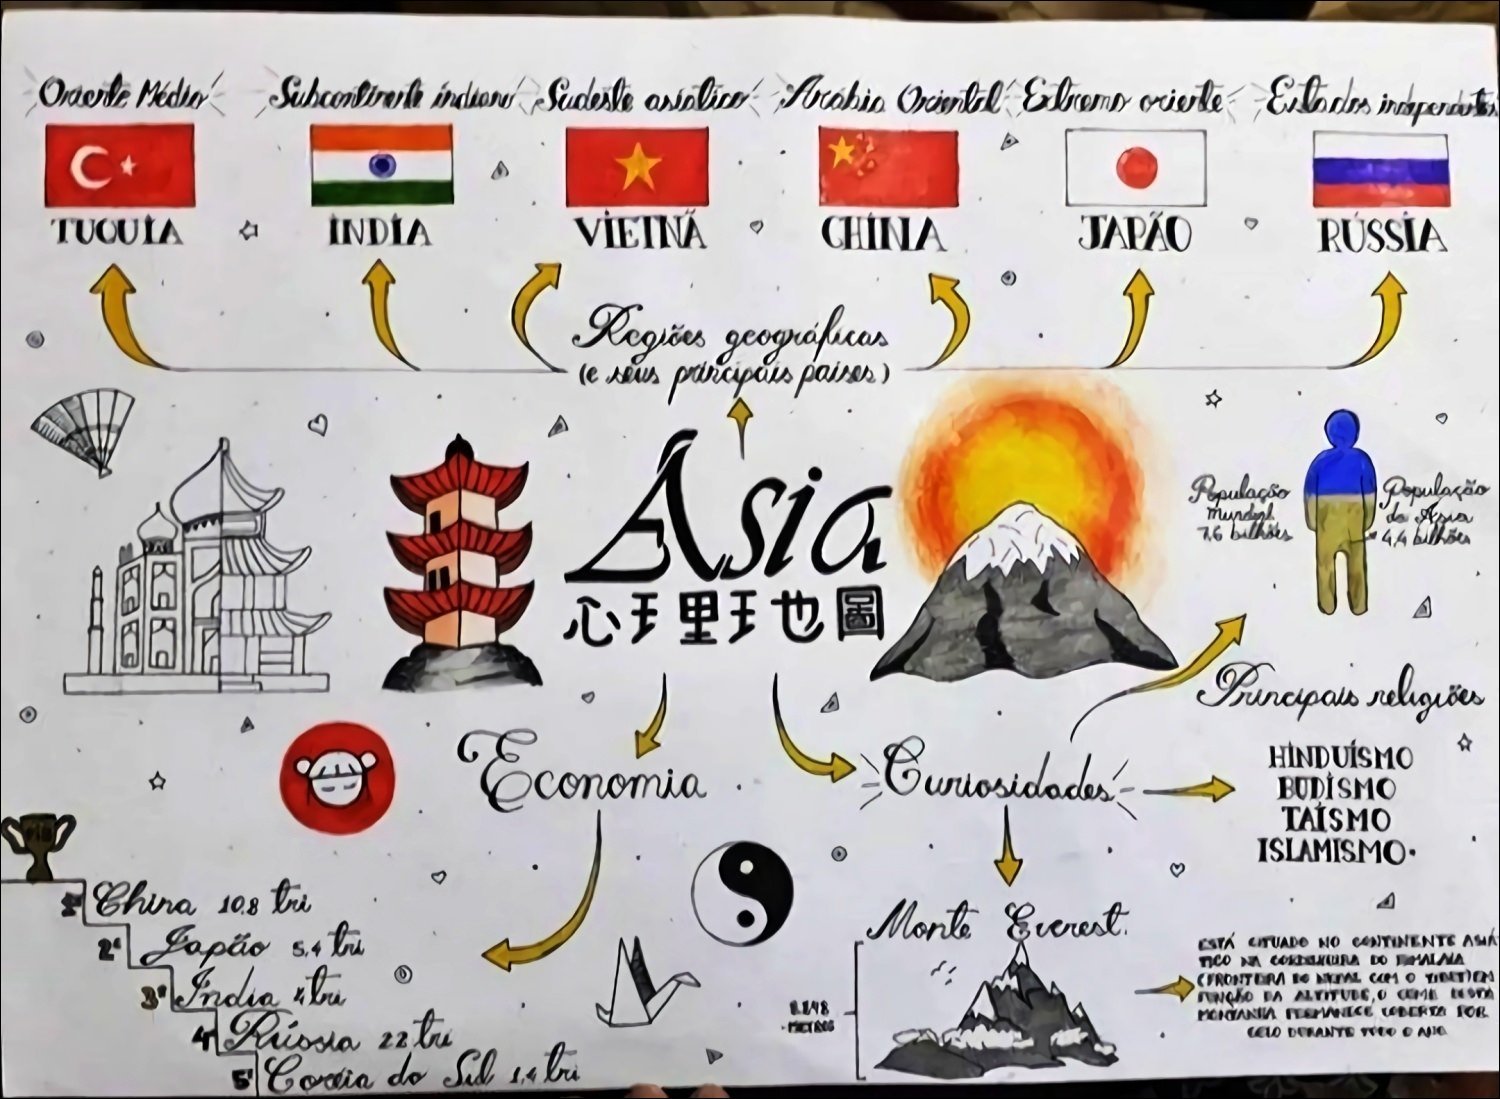 Oriente Médio
Subcontinente indiano
Sudeste asiático
Arábia Oriental
Extremo oriente
Estados independentes
TUQUIA
ÍNDIA
VIETNÃ
CHINA
JAPÃO
RÚSSIA
Regiões geográficas
(e seus principais países)
Ásia
心王里王也圖
População
mundial
7,6 bilhões
População
da Ásia
4,4 bilhões
Principais religiões
HINDUÍSMO
BUDISMO
TAÍSMO
ISLAMISMO.
Economia
Curiosidades
1º China 10,8 tri
2º Japão 5,4 tri
3º Índia 4 tri
4º Rússia 2,2 tri
5º Coréia do Sul 1,4 tri
Monte Everest.
8.848
METROS
ESTÁ SITUADO NO CONTINENTE ASIÁ
TICO NA CORDILHEIRA DO HIMALAIA
(FRONTEIRA DO NEPAL COM O TIBET) EM
FUNÇÃO DA ALTITUDE, O CUME DESTA
MONTANHA PERMANECE COBERTA POR
GELO DURANTE TODO O ANO.